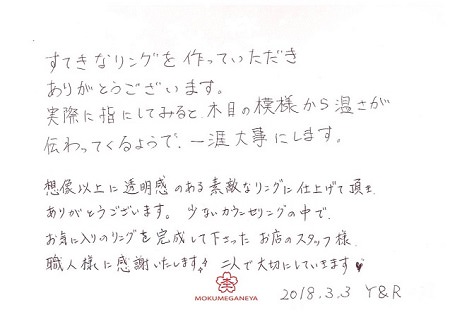 すてきなリングを作っていただき
ありがとうございます。
実際に指にしてみると、木目の模様から温さが
伝わってくるようで、一涯大事にします。
想像以上に透明感のある素敵なリングに仕上げて頂き、
ありがとうございます。少ないカウンセリングの中で、
お気に入りのリングを完成して下さったお店のスタッフ様、
職人様に感謝いたします。二人で大切にしていきます
MOKUMEGANEYA
2018.3.3 Y&R